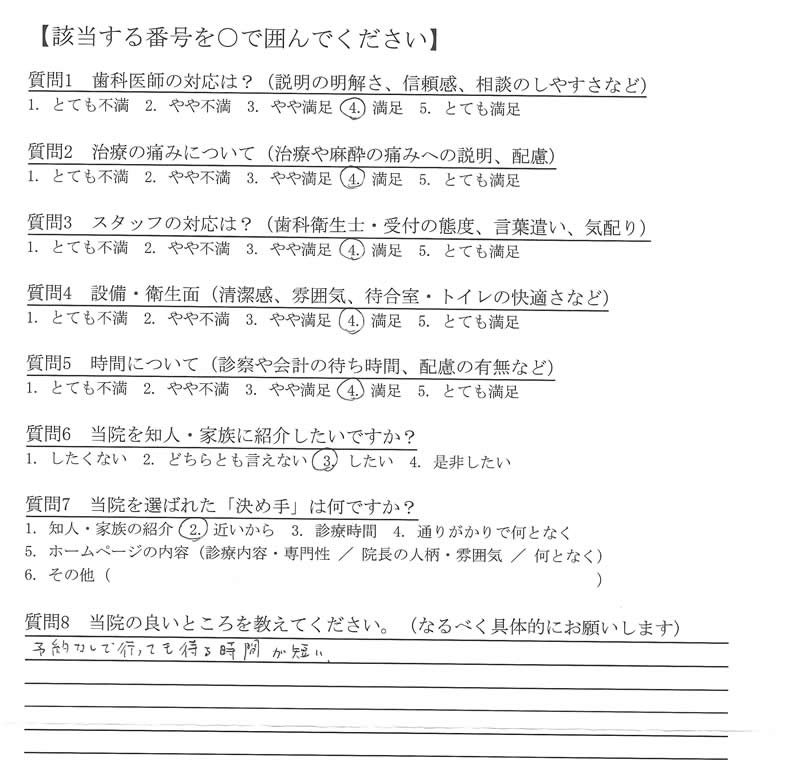 【該当する番号を○で囲んでください】
質問1 歯科医師の対応は?(説明の明解さ、信頼感、相談のしやすさなど)
1. とても不満 2. やや不満 3. やや満足 4. 満足 5. とても満足
質問2 治療の痛みについて(治療や麻酔の痛みへの説明、配慮)
1. とても不満 2. やや不満 3. やや満足 4. 満足 5. とても満足
質問3 スタッフの対応は?(歯科衛生士・受付の態度、言葉遣い、気配り)
1. とても不満 2. やや不満 3. やや満足 4. 満足 5. とても満足
質問4 設備・衛生面(清潔感、雰囲気、待合室・トイレの快適さなど)
1. とても不満 2. やや不満 3. やや満足 4. 満足 5. とても満足
質問5 時間について(診察や会計の待ち時間、配慮の有無など)
1. とても不満 2. やや不満 3. やや満足 4. 満足 5. とても満足
質問6 当院を知人・家族に紹介したいですか?
1. したくない 2. どちらとも言えない 3. したい 4. 是非したい
質問7 当院を選ばれた「決め手」は何ですか?
1. 知人・家族の紹介 2. 近いから 3. 診療時間 4. 通りがかりで何となく
5. ホームページの内容(診療内容・専門性 / 院長の人柄・雰囲気 / 何となく)
6. その他( )
質問8 当院の良いところを教えてください。(なるべく具体的にお願いします)
予約なしで行っても待る時間が短い。